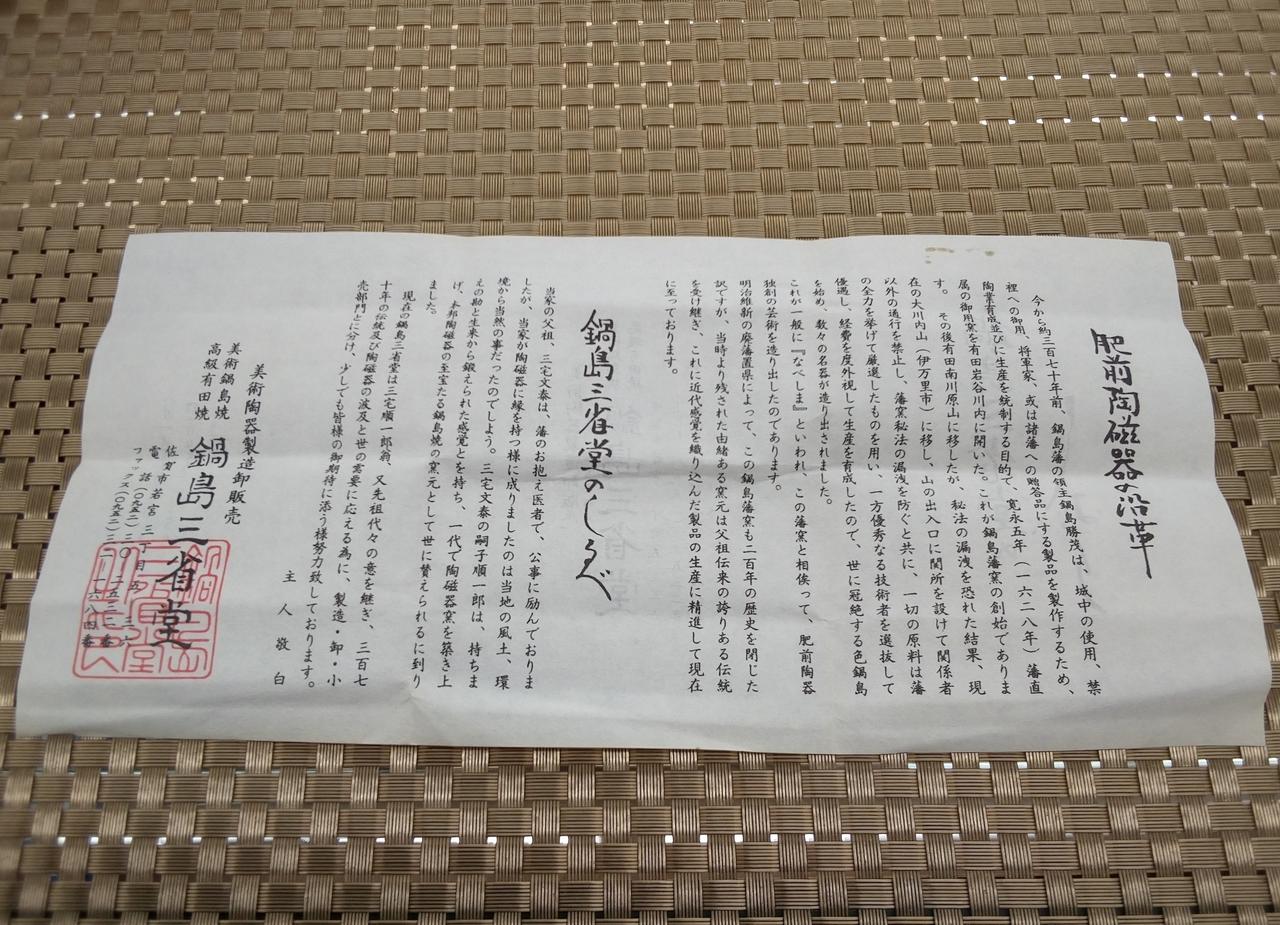 肥前陶磁器の沿革
今から約三百七十年前、鍋島藩の領主鍋島勝茂は、城中の使用、禁
裡への御用、将軍家、或は諸藩への贈答品にする製品を製作するため、
陶業育成並びに生産を統制する目的で、寛永五年（一六二八年）藩直
属の御用窯を有田岩谷川内に開いた。これが鍋島藩窯の創始でありま
す。その後有田南川原山に移したが、秘法の漏洩を恐れた結果、現
在の大川内山（伊万里市）に移し、山の出入口に関所を設けて関係者
以外の通行を禁止し、藩窯秘法の漏洩を防ぐと共に、一切の原料は藩
の全力を挙げて厳選したものを用い、一方優秀なる技術者を選抜して
優遇し、経費を度外視して生産を育成したので、世に冠絶する色鍋島
を始め、数々の名器が造り出されました。
これが一般に『なべしま』といわれ、この藩窯と相俟って、肥前陶器
独創の芸術を造り出したのであります。
明治維新の廃藩置県によって、この鍋島藩窯も二百年の歴史を閉じた
訳ですが、当時より残された由緒ある窯元は父祖伝来の誇りある伝統
を受け継ぎ、これに近代感覚を織り込んだ製品の生産に精進して現在
に至っております。
鍋島三省堂のしるべ
当家の父祖、三宅文泰は、藩のお抱え医者で、公事に励んでおりま
したが、当家が陶磁器に縁を持つ様に成りましたのは当地の風土、環
境から当然の事だったのでしよう。三宅文泰の嗣子順一郎は、持ちま
えの勘と生来から鍛えられた感覚とを持ち、一代で陶磁器窯を築き上
げ、本邦陶磁器の至宝たる鍋島焼の窯元として世に賛えられるに到り
ました。
現在の鍋島三省堂は三宅順一郎翁、又先祖代々の意を継ぎ、三百七
十年の伝統及び陶磁器の波及と世の需要に応える為に、製造・卸・小
売部門とに分け、少しでも皆様の御期待に添う様努力致しております。
主人敬白
美術陶器製造卸販売
美術鍋島焼
高級有田焼
鍋島三省堂
佐賀市若宮二丁目
電話（〇九五二）
ファックス（〇九五二）